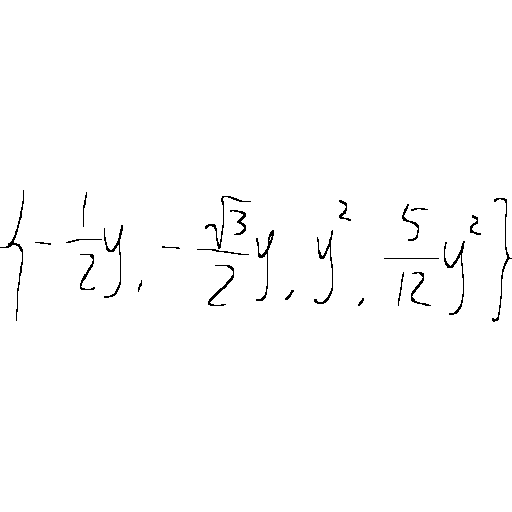 \left\{-\frac{1}{2}y,-\frac{\sqrt{3}}{2}y,y^{2},\frac{5}{12}y^{2}\right\}